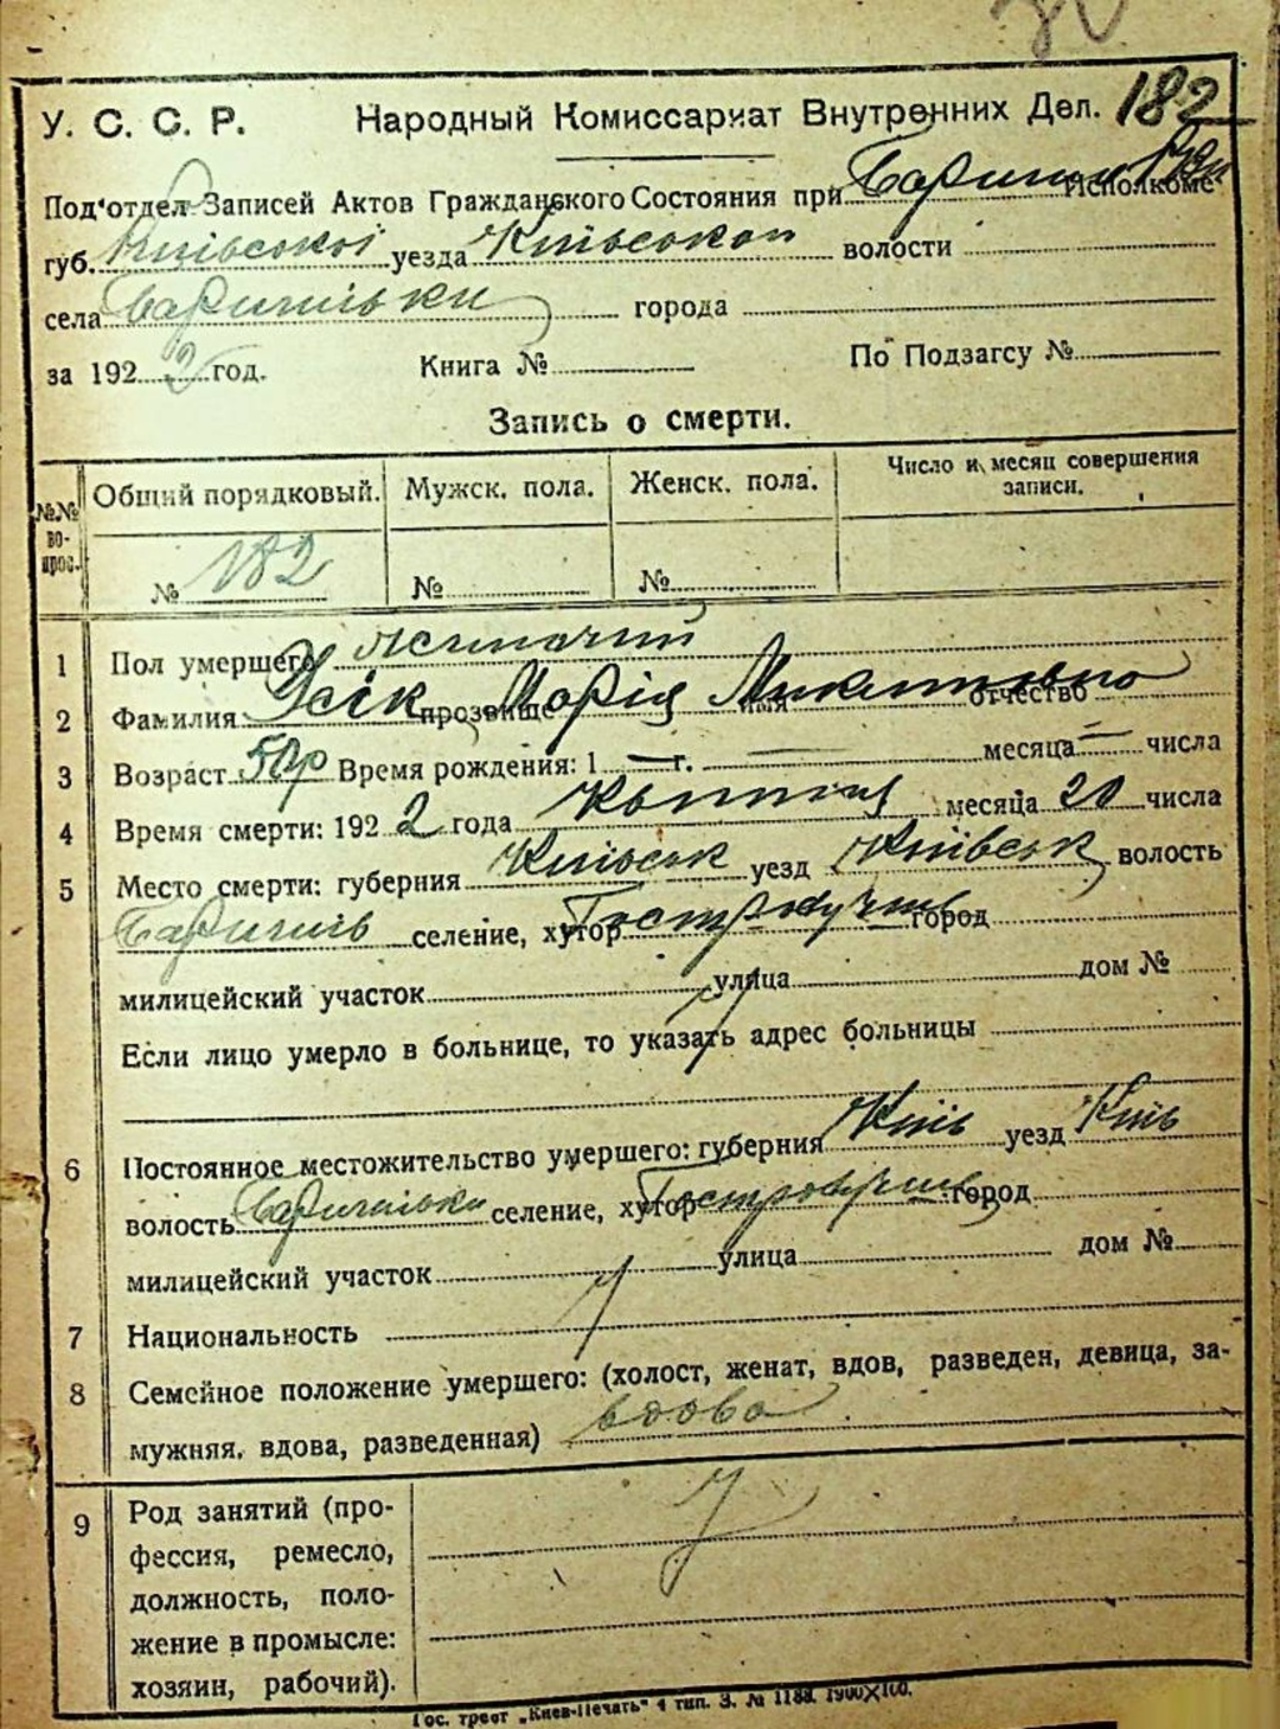 У. С. С. Р. Народный Комиссариат Внутренних Дел. 182
Под'отдел Записей Актов Гражданского Состояния при Исполкоме
губ. Київської уезда Київського волости
села города
за 1922 год. Книга № По Подзагсу №
Запись о смерти.
№№ вопрос. Общий порядковый. Мужск. пола. Женск. пола. Число и месяц совершения записи.
№ 182 № №
1 Пол умершего жіночий
2 Фамилия Усік прозвище Марія имя Микитовна отчество
3 Возраст 50 р Время рождения: 1 — г. — месяца — числа
4 Время смерти: 1922 года Квітня месяца 20 числа
5 Место смерти: губерния Київськ уезд Київськ волость
селение, хутор город
милицейский участок улица дом №
Если лицо умерло в больнице, то указать адрес больницы
6 Постоянное местожительство умершего: губерния Київ уезд Київ
волость селение, хутор город
милицейский участок улица дом №
7 Национальность
8 Семейное положение умершего: (холост, женат, вдов, разведен, девица, за-
мужняя, вдова, разведенная) вдова
9 Род занятий (про-
фессия, ремесло,
должность, поло-
жение в промысле:
хозяин, рабочий).
Гос. трест „Киев-Печать" 4 тип. З. № 1188. 1900×100.